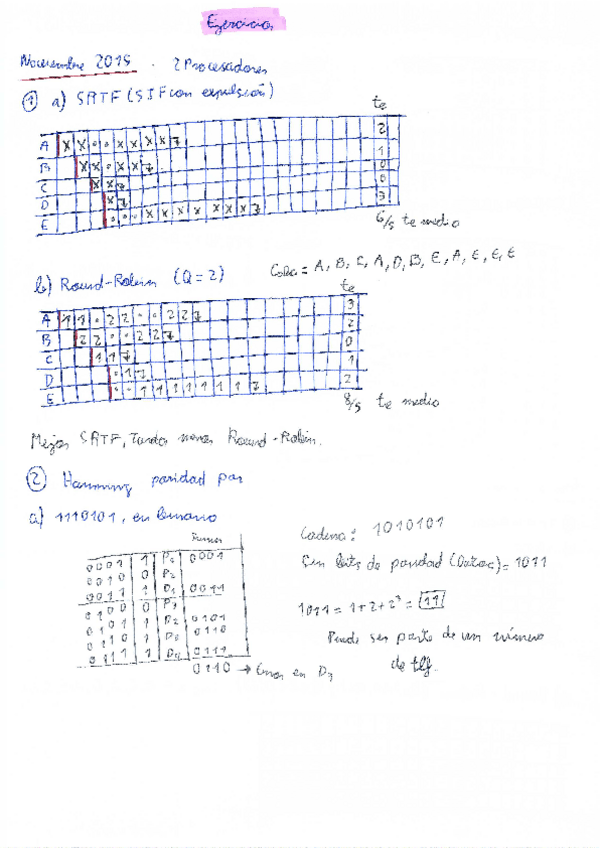 Ejercicios
Noviembre 2015 . 2 Procesadores
① a) SRTF (SJF con expulsión)
te
A X X o o X X X X 7 2
B X X o X X 7 1
C X X 7 0
D X 7 0
E o o o X X X X X X X X 7 3
6/5 te medio
b) Round-Robin (Q=2)
Cola = A, B, C, A, D, B, E, A, E, E, E
te
A 1 1 o 2 2 o o 2 2 7 3
B 2 2 o o 2 2 7 2
C 1 1 7 0
D o 1 7 1
E o o 1 1 1 1 1 1 1 7 2
8/5 te medio
Mejor SRTF, Tarda menos Round-Robin.
② Hamming paridad par
a) 1110101, en binario
0001 1 P1 0001
0010 0 P2
0011 1 D1 0011
0100 0 P3
0101 1 D2 0101
0110 1 D3 0110
0111 1 D4 0111
0110 → Error en D3
Cadena: 1010101
Sin bits de paridad (Datos) = 1011
1011 = 1+2+2³ = 11
Puede ser parte de un número
de tlf.